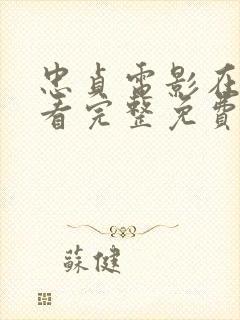 忠貞電影在
看完整免費
蘇健